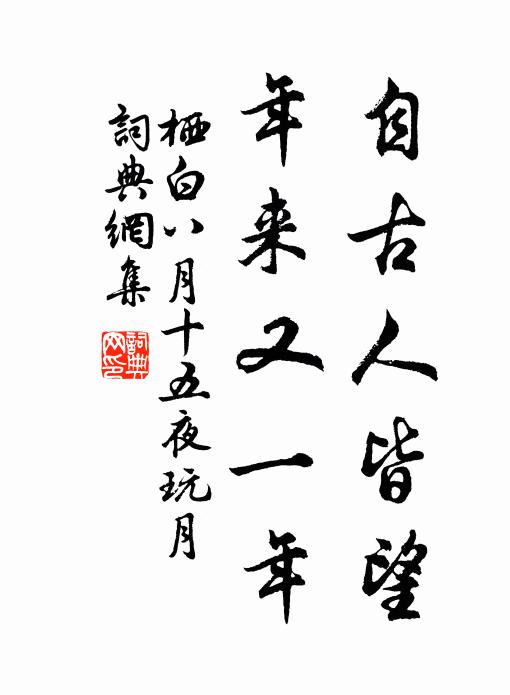 自古人皆望
年来又一年
栖白八月十五夜玩月
詞典網集
詞典网印